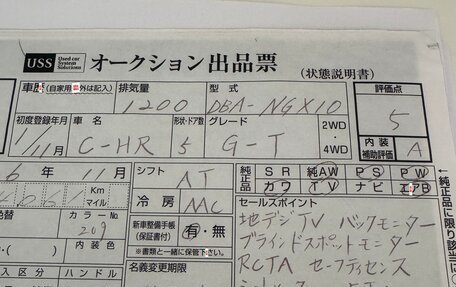 USS Used car System Solutions オークション出品票 (状態説明書)
車歴 (自家用以外は記入) 排気量 型式 評価点
1200 DBA-NGX10 5
初度登録年月 車名 形状・ドア数 グレード 2WD ・ 4WD 内装 補助評価 A
11/11月 C-HR 5 G-T
6年 11月 シフト AT 純正品 SR 純AW PS PW
Km マイル 冷房 AAC カワ TV ナビ エアB
色替 カラーNo 209 新車整備手帳 (保証書付) 有・無 セールスポイント
地デジTV バックモニター
内装色 ※書類と一緒に保管下さい。 ブラインドスポットモニター
入区分 ハンドル 名義変更期限 RCTA セーフティセンス
←純正品以外は